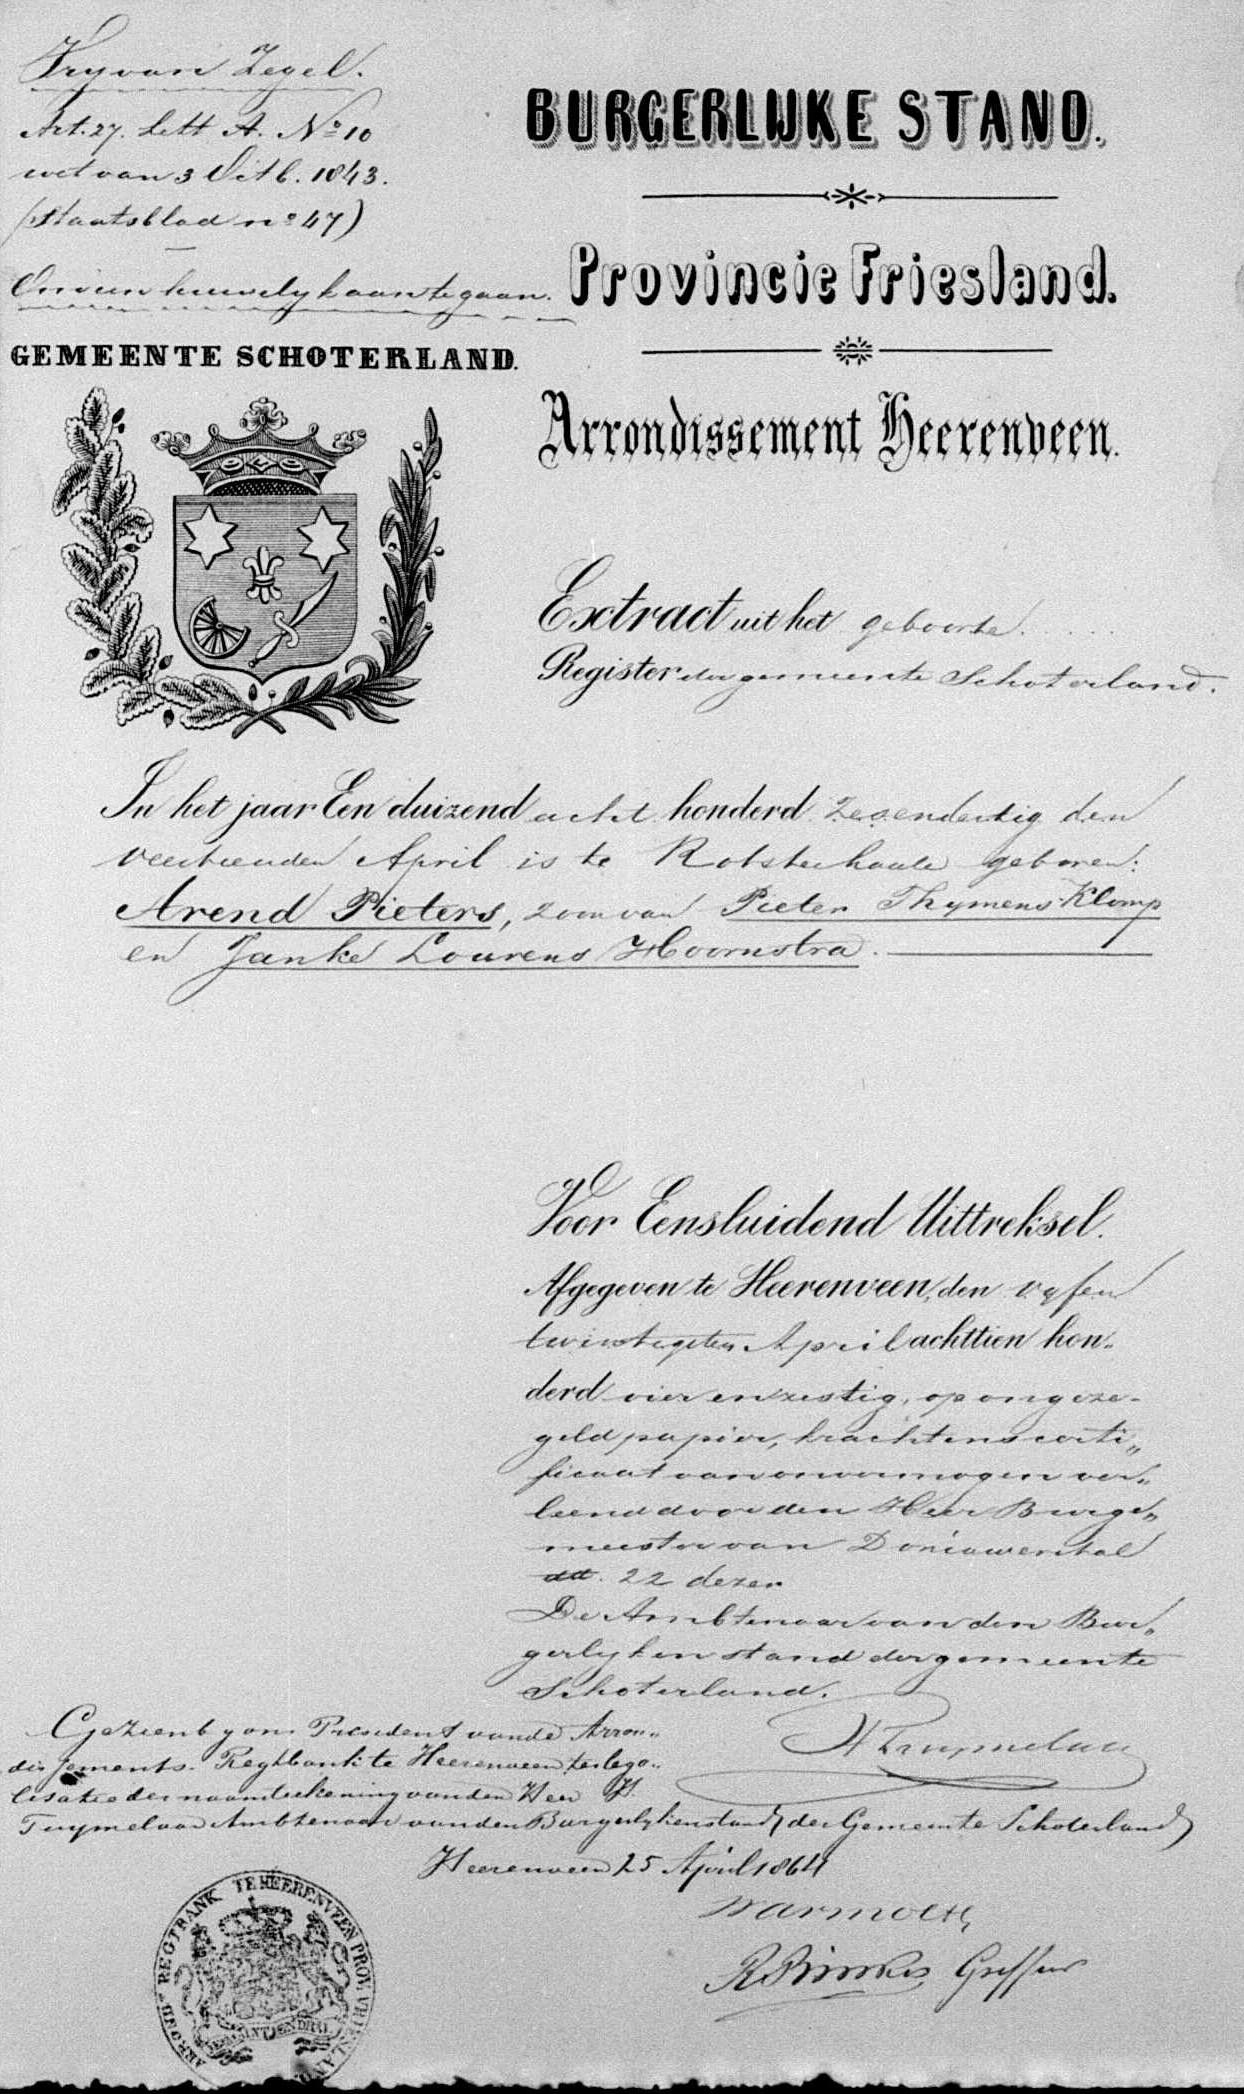 Vry van Zegel.
Art. 27. Lett A. No 10
wet van 3 Octb. 1843.
(Staatsblad no 47)
Om een huwelyk aan te gaan.
BURGERLIJKE STAND.
Provincie Friesland.
GEMEENTE SCHOTERLAND.
Arrondissement Heerenveen.
Extract uit het geboorte
Register der gemeente Schoterland.
In het jaar Een duizend acht honderd zesendertig den
veertienden April is te Rotsterhaule geboren:
Arend Pieters, zoon van Pieter Thymens Klomp
en Janke Lourens Hoornstra.
Voor Eensluidend Uittreksel.
Afgegeven te Heerenveen, den vyfen
twintigsten April achttien hon-
derd vier en zestig, op ongeze-
geld papier, krachtens certi„
ficaat van onvermogen ver„
leend door den Heer Burge„
meester van Doniawerstal
dd. 22 dezer
De Ambtenaar van den Bur„
gerlyken stand der gemeente
Schoterland.
Gezien by ons President van de Arron„
dissements Regtbank te Heerenveen ter lega„
lisatie der naamteekening van den Heer H.
Tuymelaar Ambtenaar van den Burgerlyken stand der Gemeente Schoterland
Heerenveen 25 April 1864
R Binnkes Greffier
ARROND: REGTBANK TE HEERENVEEN PROV. VRIESLAND